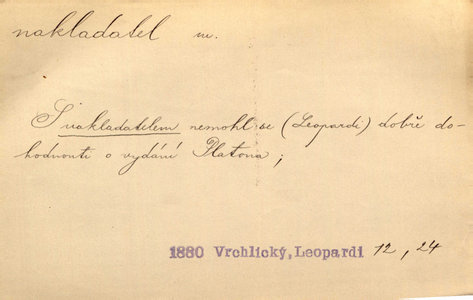 nakladatel m.
S nakladatelem nemohl se (Leopardi) dobře do-
hodnouti o vydání Platona;
1880 Vrchlický, Leopardi 12, 24